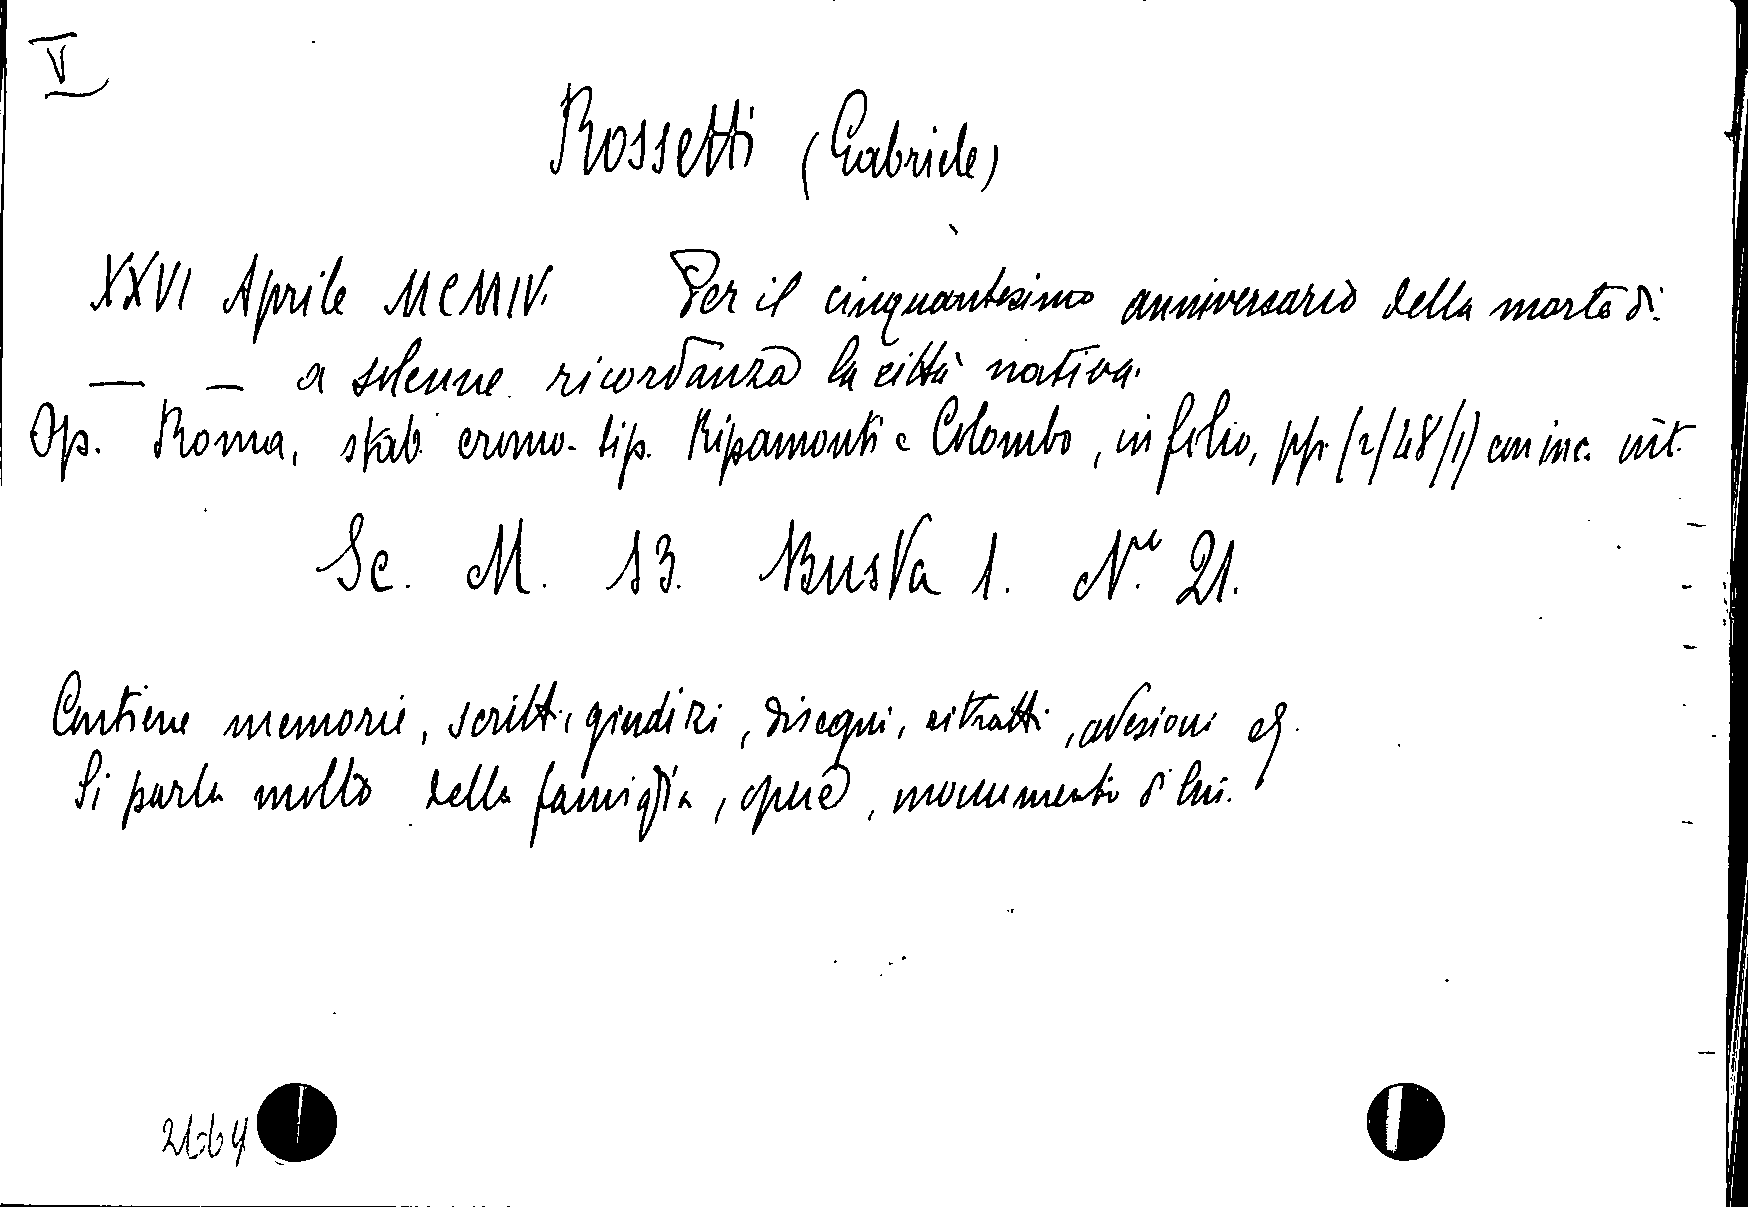 V
Rossetti (Gabriele)
XXVI Aprile MCMIV. Per il cinquantesimo anniversario della morte di
— — a solenne ricordanza la città nativa.
Op. Roma, stab. cromo-tip. Ripamonti e Colombo, in folio, pp. (2/48/1) con inc. int.
Sc. M. 13. Busta 1. N.º 21.
Contiene memorie, scritti, giudizi, disegni, ritratti, adesioni
Si parla molto della famiglia, opere, monumento di lui.
2664